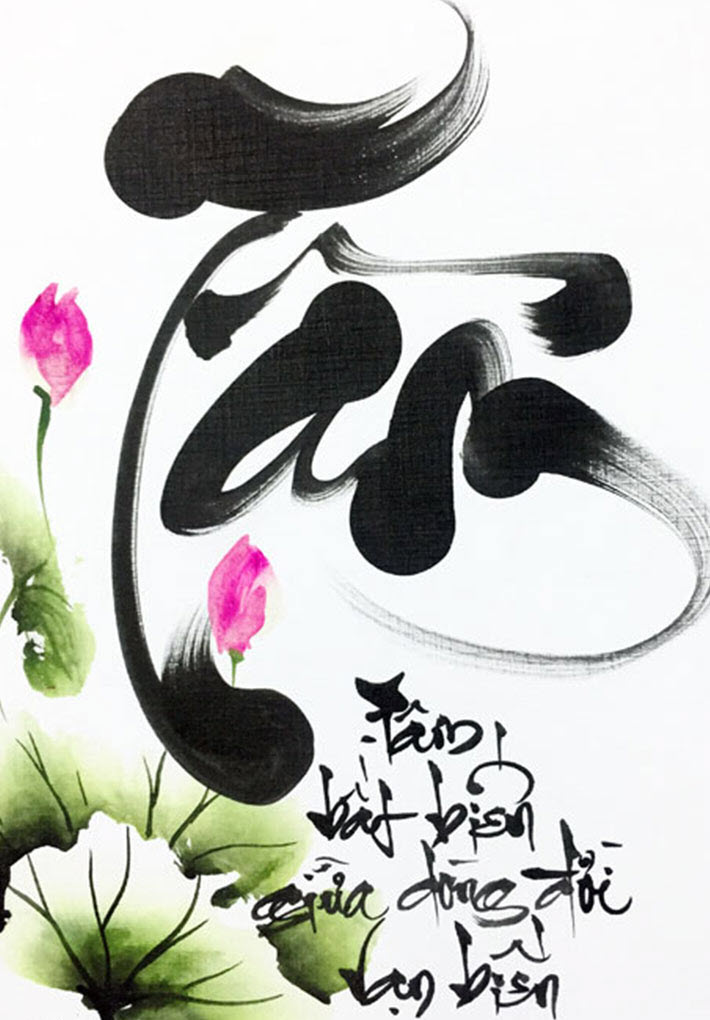 Tâm
Tâm
bất biến
giữa dòng đời
vạn biến